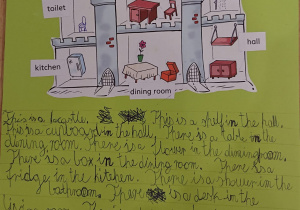 toilet
hall
kitchen
dining room
This is a
is a shelf in the hall.
This is a cupboard in the hall. There is a table in the
dining room. There is a flower in the dining room.
There is a box in the dining room. There is a
fridge in the kitchen. There is a shower in the
bathroom. There is a desk in the